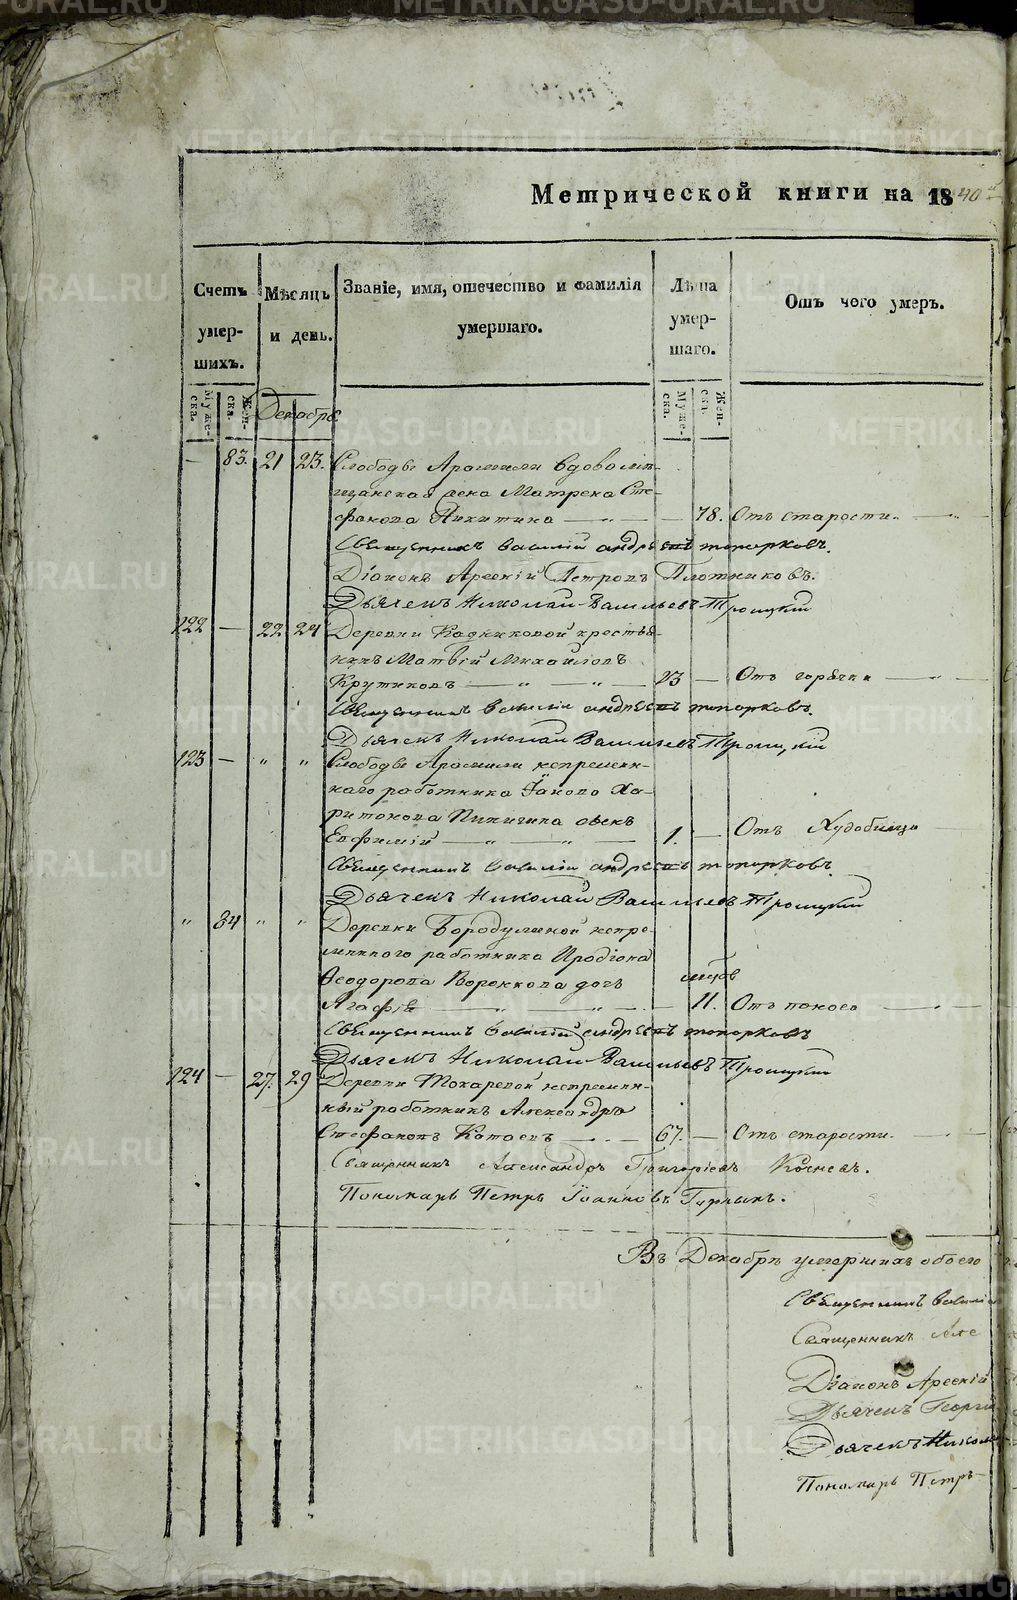 Метрической книги на 1840
Счетъ умершихъ.
Мѣсяцъ и день.
Званіе, имя, отечество и фамилія умершаго.
Лѣта умершаго.
Отъ чего умеръ.
Мужеска. Женска.
Мужеска. Женска.
Декабрь
— 83. 21 23. Слободы Арамили вдова
жена Матрена Сте-
фанова Никитина — „ — — 78. Отъ старости. — „ —
Священникъ Василій Андреевъ Топорковъ.
Діаконъ Арсеній Петровъ Плотниковъ.
Дьячекъ Николай Васильевъ Троицкій
122 — 22 24 Деревни Кадниковой крестья-
нинъ Матвѣй Михайловъ
Крутиковъ — „ — „ — 23 — Отъ горячки — „ —
Священникъ Василій Андреевъ Топорковъ.
Дьячекъ Николай Васильевъ Троицкій
123 — „ „ Слободы Арамили непремен-
наго работника Іакова Ха-
ритонова сынъ
Евфимій — „ — „ — 1. — Отъ Худобища
Священникъ Василій Андреевъ Топорковъ.
Дьячекъ Николай Васильевъ Троицкій
„ 84 „ „ Деревни Бородулиной непре-
меннаго работника Иродіона
Ѳеодорова Воронкова дочь
мѣсяцовъ
Агафія — „ — „ — 11. Отъ поноса — „ —
Священникъ Василій Андреевъ Топорковъ
Дьячекъ Николай Васильевъ Троицкій
124 — 27. 29 Деревни Токаревой непремен-
ный работникъ Александръ
Стефановъ Котовъ — „ — 67. — Отъ старости. — „ —
Священникъ Александръ Григоріевъ Косневъ.
Пономарь Петръ Іоанновъ
Въ Декабрѣ умершихъ обоего
Священникъ Василій
Священникъ Але
Діаконъ Арсеній
Дьячекъ Георгій
Дьячекъ Николай
Пономарь Петръ
METRIKI.GASO-URAL.RU